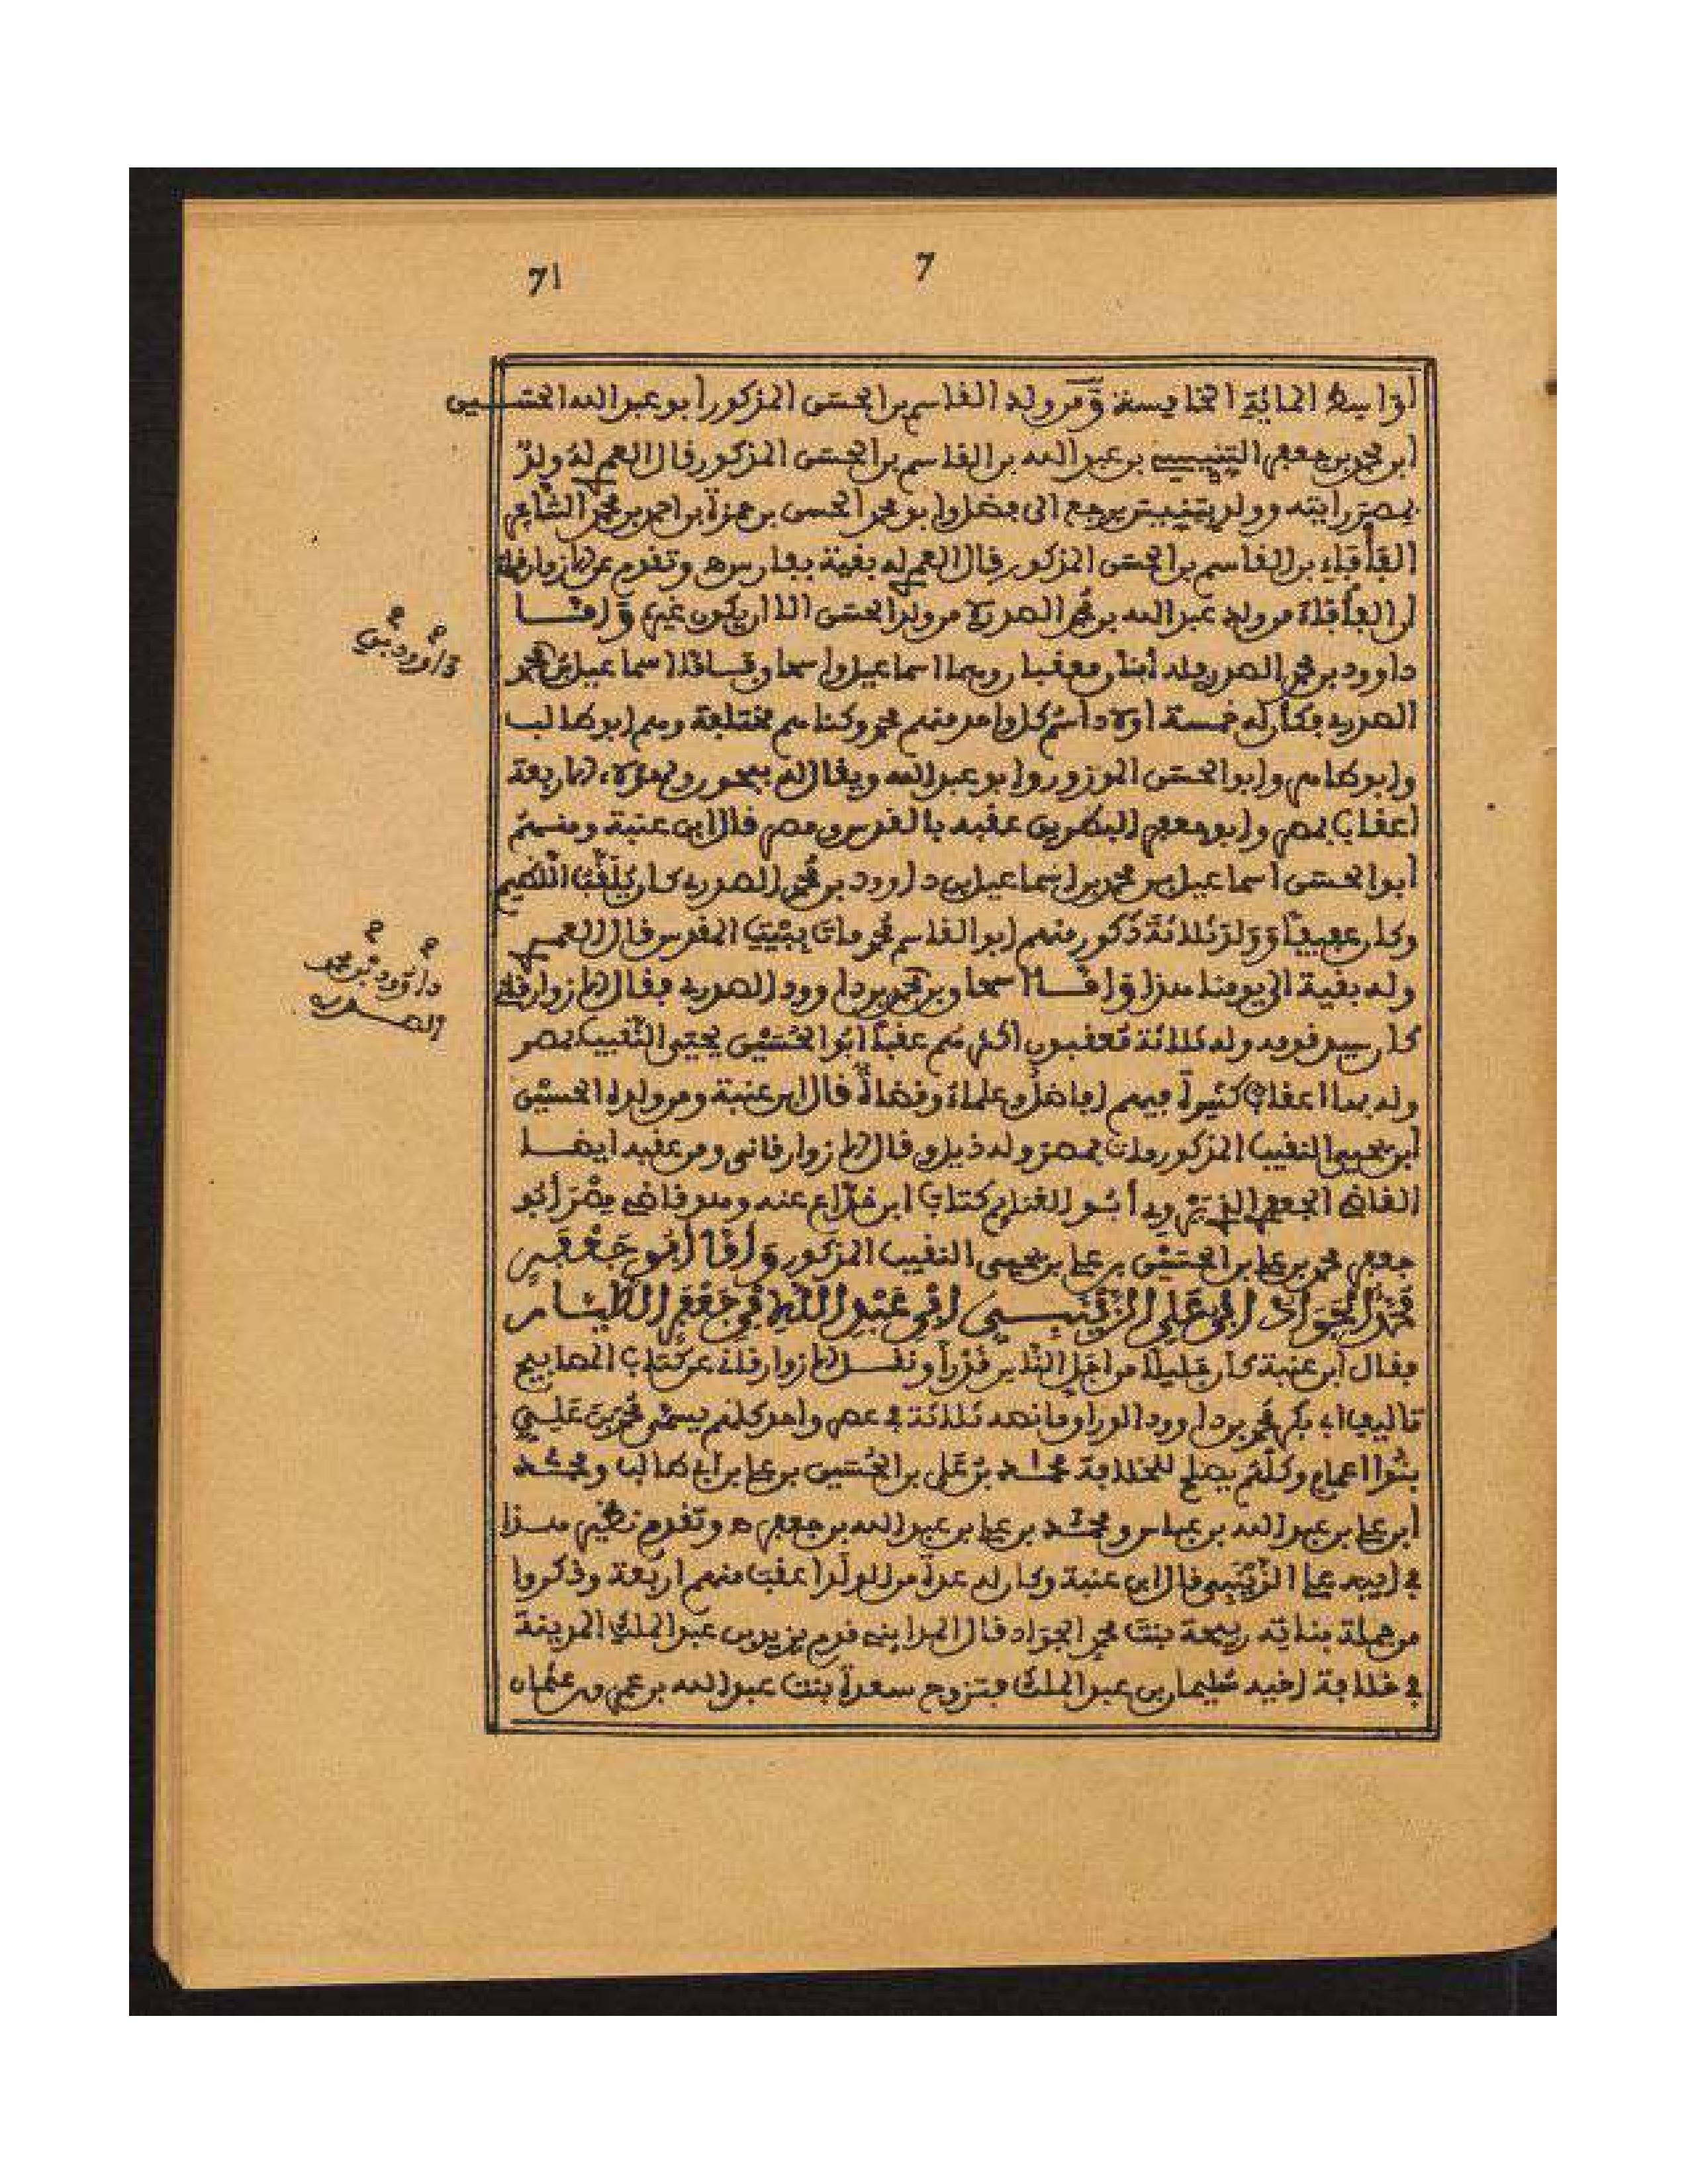 7
71
أواسط المائة الخامسة ومن ولد القاسم بن الحسن المذكور أبو عبد الله الحسين
ابن محمد بن جعفر التنيسي بن عبد الله بن القاسم بن الحسن المذكور قال العمري له ولد
بمصر رأيته وولد بتنيس يرجع إلى فضل وأبو محمد الحسن بن حمزة بن أحمد بن محمد الشاعر
الفأفاء بن القاسم بن الحسن المذكور قال العمري له بقية بفارس وتقدم عن الازوارقاني
أن الفأفاء من ولد عبد الله بن محمد الصدري لا من ولد الحسن الا أن يكون غيره وأما
داوود بن محمد الصدري فله أبناء معقبان وهما اسماعيل واسحاق فاما اسماعيل بن محمد
الصدري فكان له خمسة أولاد اسم كل واحد منهم محمد وكناهم مختلفة وهم أبو طالب
وأبو طاهر وأبو الحسن المزور وأبو عبد الله ويقال له ولهؤلاء الاربعة
أعقاب بمصر وأبو جعفر عقبه بالقدس ومصر قال ابن عنبة ومنهم
أبو الحسن اسماعيل بن محمد بن إسماعيل بن داوود بن محمد الصدري كان يلقب
وكان عفيفا وولد ثلاثة ذكور منهم أبو القاسم محمد مات ببيت المقدس قال العمري
وله بقية الى يومنا هذا وأما اسحاق بن محمد بن داوود الصدري فقال الازوارقاني
كان سيد قومه وله ثلاثة معقبون أكثرهم عقبا أبو الحسين يحيى النقيب بمصر
وله بها أعقاب كثيرة فيهم أفاضل وعلماء وقضاة قال ابن عنبة ومن ولده الحسين
ابن يحيى النقيب المذكور مات بمصر وله ذيل وقال الازوارقاني ومن عقبه ايضا
القاضي الجعفري الذي يروي أبو الغنائم كتاب ابن خداع عنه وهو قاضي مصر أبو
جعفر محمد بن علي بن الحسين بن علي بن يحيى النقيب المذكور وأما أبو جعفر
محمد الجواد ابن علي الزينبي ابن عبد الله بن جعفر الطيار
فقال ابن عنبة كان جليلا من أجل الناس قدرا ونقل الازوارقاني عن كتاب المصابيح
تاليف أبي بكر محمد بن داوود الوراق ما نصه ثلاثة في عصر واحد كلهم يسمى محمد بن علي
بنوا أعمام وكلهم يصلح للخلافة محمد بن علي بن الحسين بن علي بن أبي طالب ومحمد
ابن علي بن عبد الله بن عباس ومحمد بن علي بن عبد الله بن جعفر ه وتقدم نظير هذا
في أبيه علي الزينبي قال ابن عنبة وكان له عدة من الولد أعقب منهم أربعة وذكروا
من جملة بناته ربيحة بنت محمد الجواد قال المدايني قدم يزيد بن عبد الملك المدينة
في خلافة أخيه سليمان بن عبد الملك فتزوج سعدة بنت عبد الله بن عمرو بن عثمان
داوود بن
داوود بن محمد
الصدري